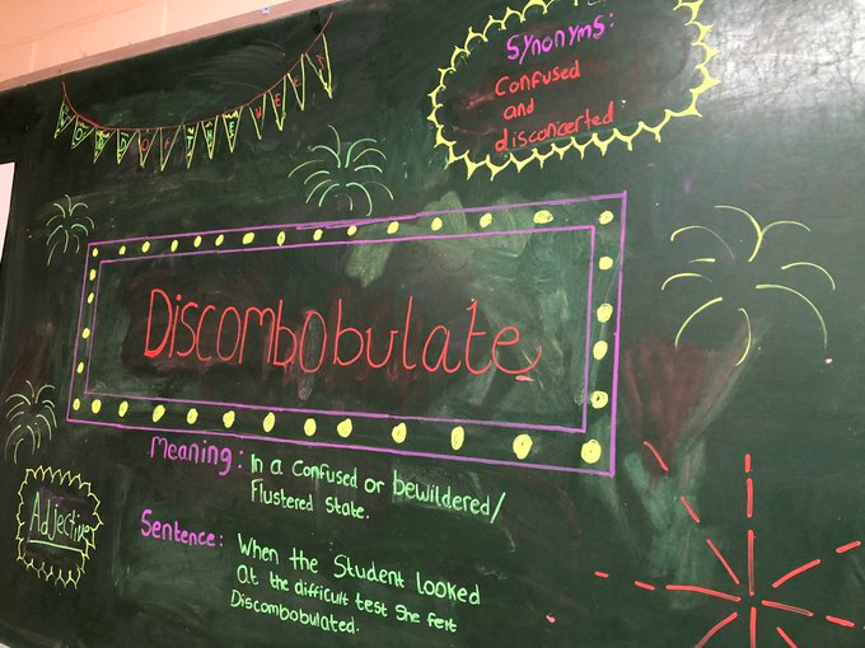 WORD OF THE WEEK
Synonyms:
Confused
and
disconcerted
Discombobulate
Meaning: In a Confused or bewildered/
Flustered State.
Adjective
Sentence: When the Student looked
at the difficult test She felt
Discombobulated.